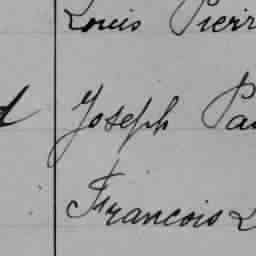 Louis Pierr
Joseph Pa
Francois